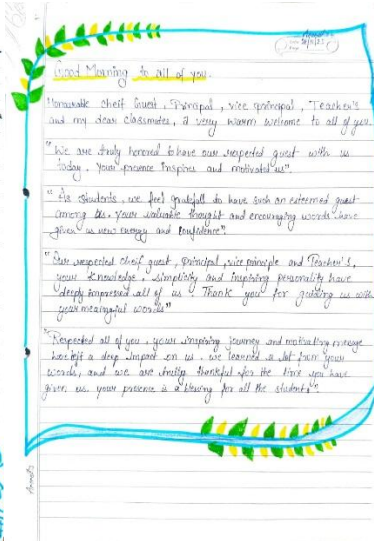 Good Morning to all of you.
Honourable cheif Guest, Principal, vice principal, Teacher's
and my dear classmates, a very warm welcome to all of you.
"We are truly honored to have our respected guest with us
today. Your presence inspires and motivates us".
"As students, we feel gratefull to have such an esteemed guest
among us. Your valuable thought and encouraging words have
given us new energy and confidence".
"Our respected cheif guest, principal, vice principle and Teacher's,
your knowledge, simplicity and inspiring personality have
deeply impressed all of us. Thank you for guiding us with
your meaningful words"
"Respected all of you, your inspiring journey and motivating message
have left a deep impact on us. we learned a lot from your
words, and we are truly thankful for the time you have
given us. your presence is a blessing for all the students".